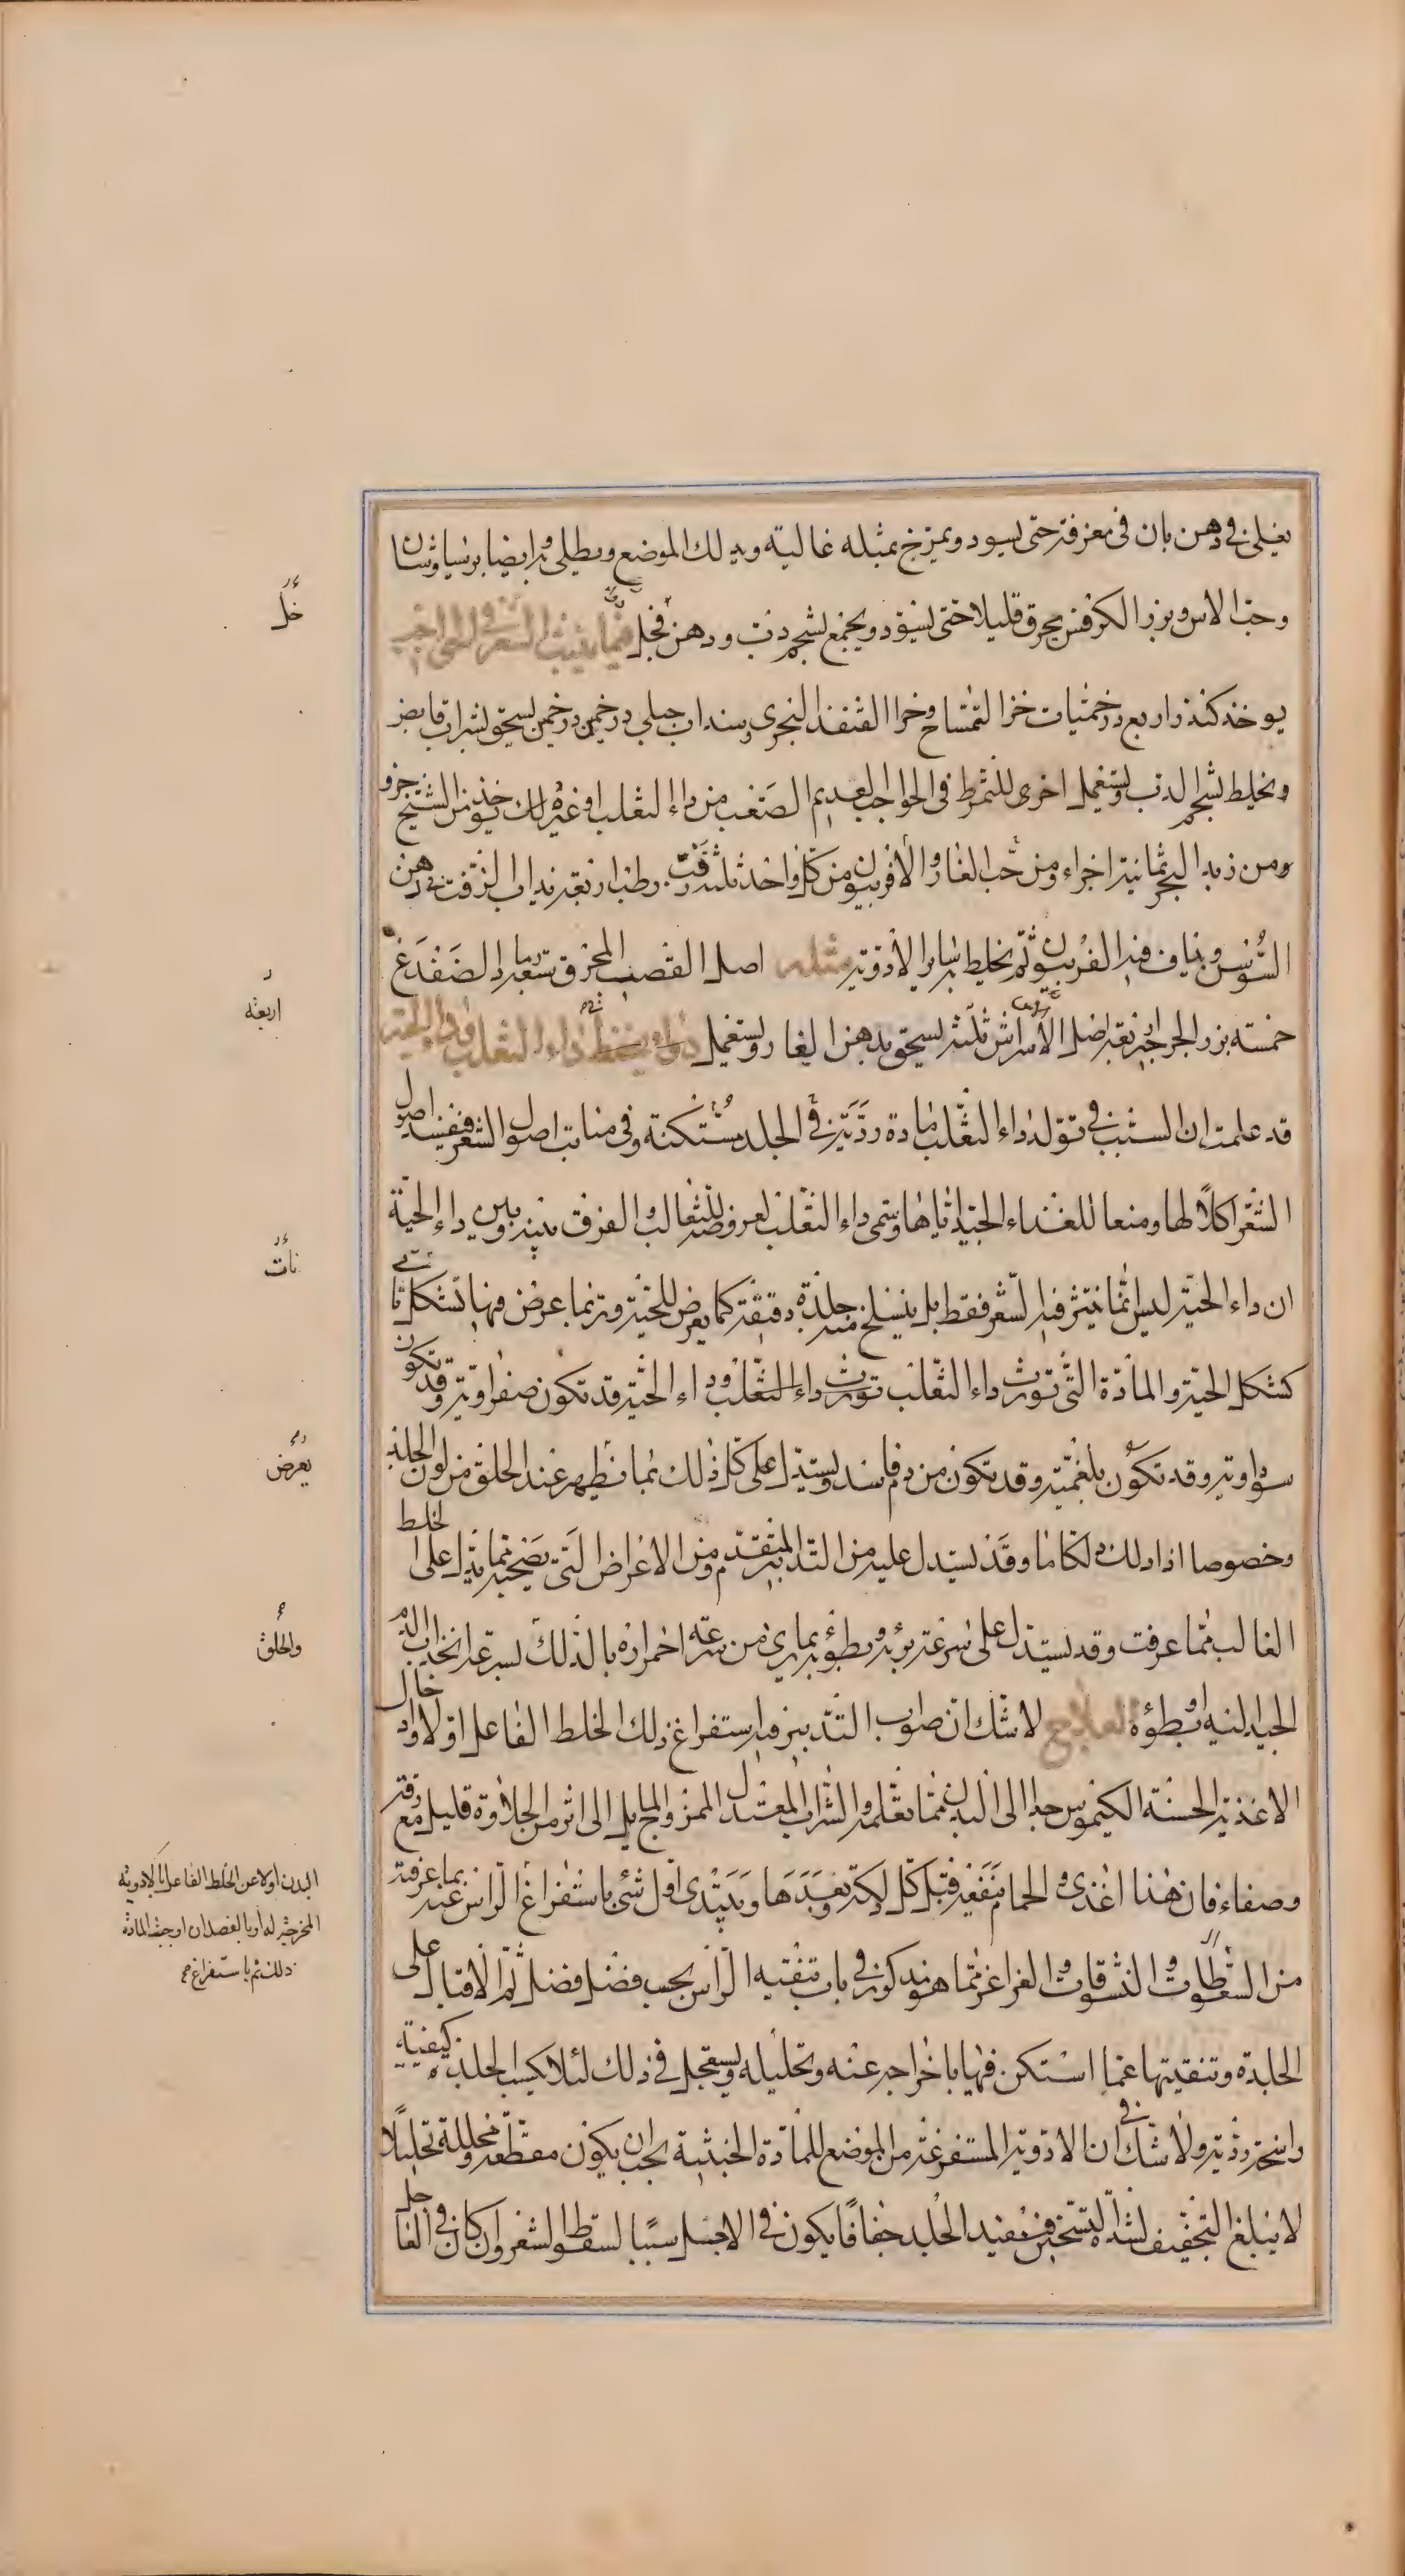 يغلى في دهن بان في مغرفة حتى يسود ويمزج بمثله غالية ويدلك الموضع ويطلى به ايضا برسياوشان
وحب الاس وبزر الكرفس يحرق قليلا حتى يسود ويجمع بشحم دب ودهن فجل فيما ينبت الشعر في الحواجب
يوخذ كندر اربع درخميات خرا التمساح وخرا القنفذ البحرى وسنداب جبلي درخمين درخمين يسحق بشراب قابض
ويخلط بشحم الدب ويستعمل اخرى للتمرط في الحواجب العديم الصعب من داء الثعلب او غير ذلك يوخذ من الشيح جزو
ومن زبد البحر ثمانية اجزاء ومن حب الغار والافربيون من كل واحد ثلثة زفت رطب اربعة يذاب الزفت في دهن
السوسن ويداف فيه الفربيون ثم يخلط به ساير الادوية مثله اصل القصب المحرق تسعة رماد الضفدع
خمسة بزر الجرجير اربعة اصل الاسراش ثلثة يسحق بدهن الغار ويستعمل داء الثعلب وداء الحية
قد علمت ان السبب في تولد داء الثعلب مادة ردية في الجلد مستكنة وفي منابت اصول الشعر فيفسد اصول
الشعر اكلا لها ومنعا للغذاء الجيد اياها وسمى داء الثعلب لعروضه للثعالب والفرق بينه وبين داء الحية
ان داء الحية ليس انما ينتثر فيه الشعر فقط بل ينسلخ منه جلدة دقيقة كما يعرض للحية وربما عرض فيها تشكل ما
كشكل الحية والمادة التي تورث داء الثعلب تورث داء الثعلب وداء الحية قد تكون صفراوية وقد تكون
سوداوية وقد تكون بلغمية وقد تكون من دم فاسد ويستدل على كل ذلك بما يظهر عند الحلق من لون الجلد
وخصوصا اذا دلك دلكا ما وقد يستدل عليه من التدبير المتقدم ومن الاعراض التي تصحبه مما يدل على الخلط
الغالب مما عرفت وقد يستدل على سرعة برئه وبطوئه بما يرى من سرعة احمراره بالدلك لسرعة انجذاب الدم
الجيد اليه او بطوه العلاج لا شك ان صواب التدبير فيه استفراغ ذلك الخلط الفاعل اولا وادخال
الاغذية الحسنة الكيموس جدا الى البدن مما تعلمه والشراب المعتدل الممزوج المايل الى اثر من الحلاوة قليل مع رقة
وصفاء فان هذا اغذى والحمام ينفعه قبل كل دلكة وبعدها ويبتدى اول شئ باستفراغ الراس عنه بما عرفته
من السعوطات والنشوقات والغراغر مما هو مذكور في باب تنقيه الراس بحسب فضل فضل ثم الاقبال على
الجلدة وتنقيتها عما استكن فيها باخراجه عنه وتحليله ويستعجل في ذلك لئلا يكسب الجلدة كيفية
راسخة ردية ولا شك في ان الادوية المستفرغة من الموضع للمادة الخبيثة يجب ان يكون مقطعة ومحللة تحليلا
لا يبلغ التجفيف لشدة التسخين فيفيد الجلد جفافا يكون في الاجل سببا لسقوط الشعر وان كان في العاجل
خل
اربعة
نات
يعرض
والحلق
البدن اولا عن الخلط الفاعل بالادوية
المخرجة له او بالفصد ان اوجبت المادة
ذلك ثم باستفراغ صح